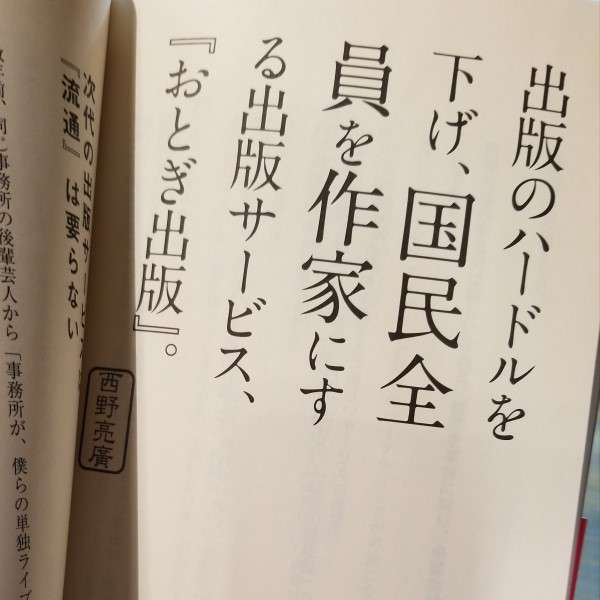 出版のハードルを
下げ、国民全
員を作家にす
る出版サービス、
『おとぎ出版』。
西野亮廣
次代の出版サービスに
『流通』は要らない
同じ事務所の後輩芸人から「事務所が、僕らの単独ライブ